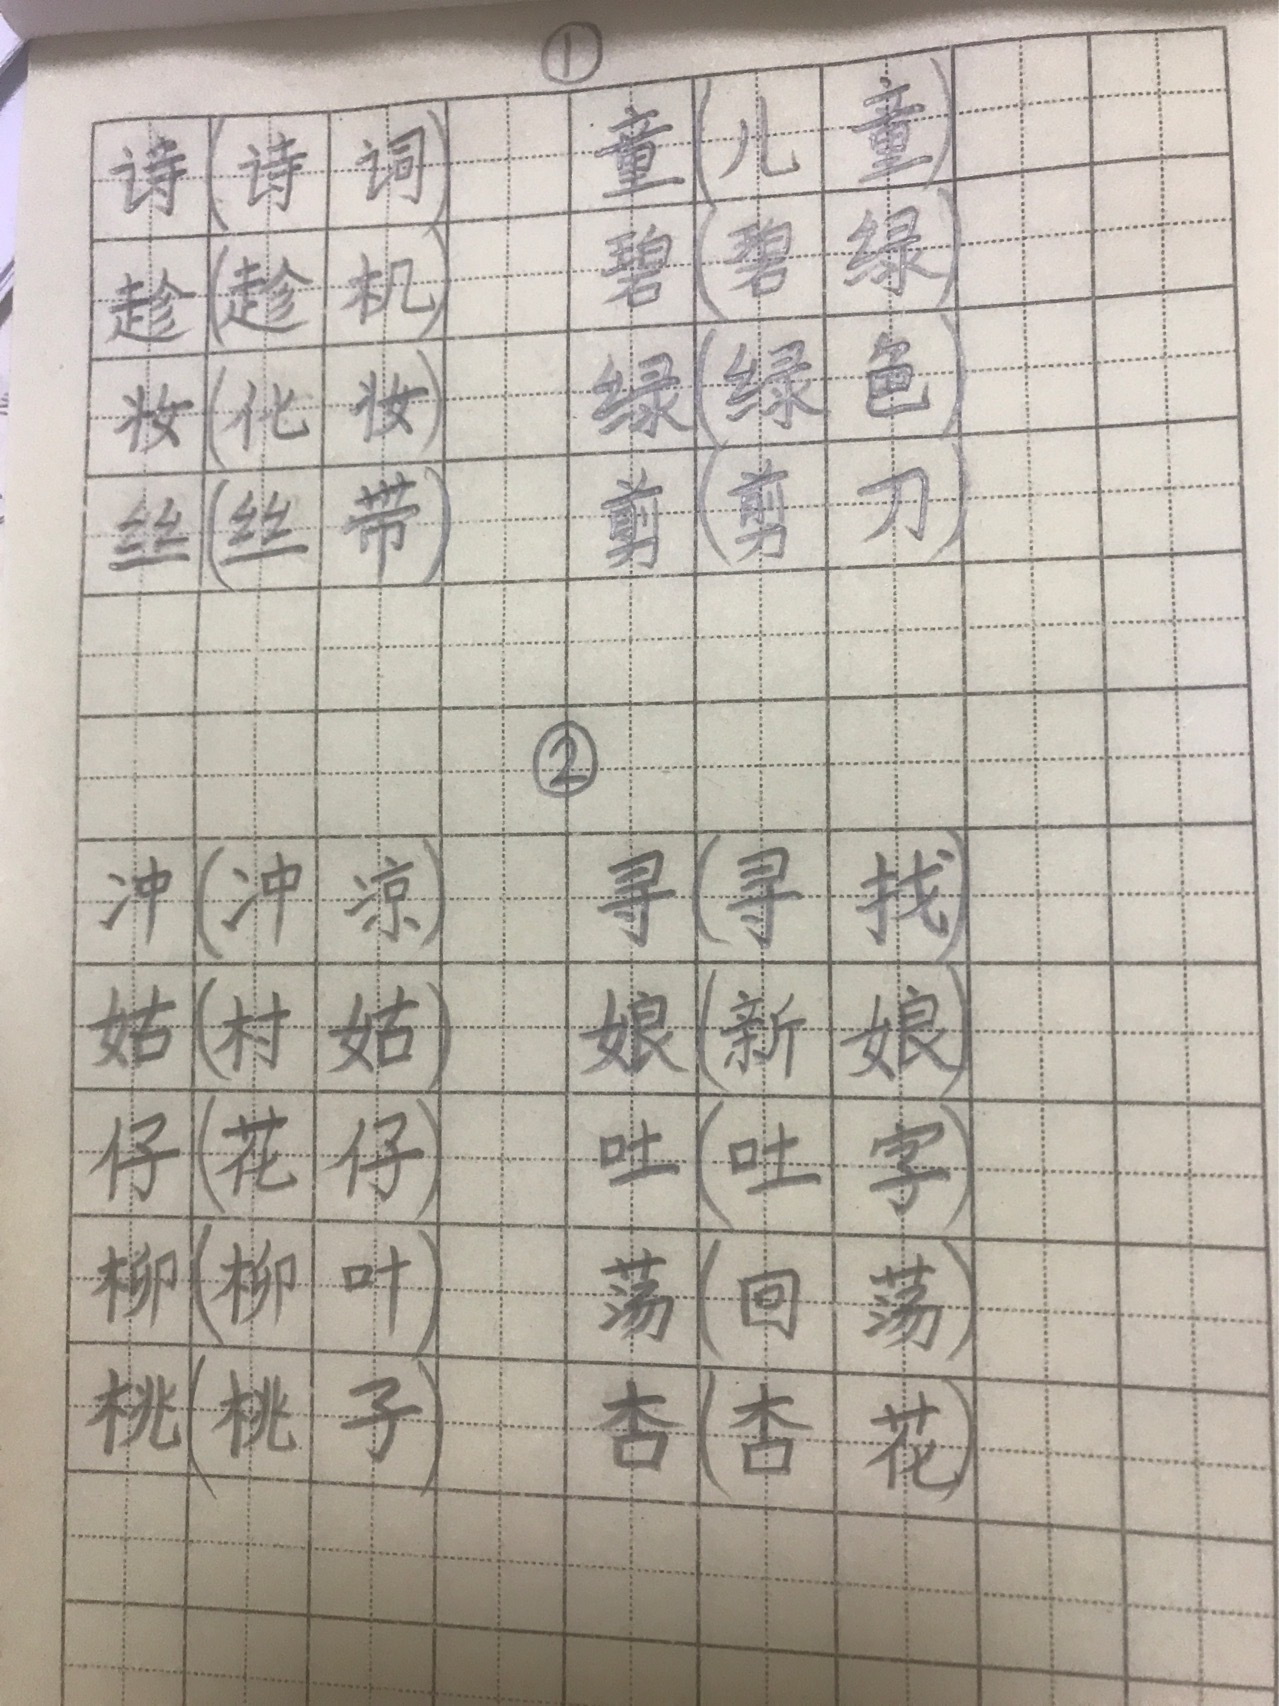 ①
诗(诗词) 童(儿童)
趁(趁机) 碧(碧绿)
妆(化妆) 绿(绿色)
丝(丝带) 剪(剪刀)
②
冲(冲凉) 寻(寻找)
姑(村姑) 娘(新娘)
仔(花仔) 吐(吐字)
柳(柳叶) 荡(回荡)
桃(桃子) 杏(杏花)